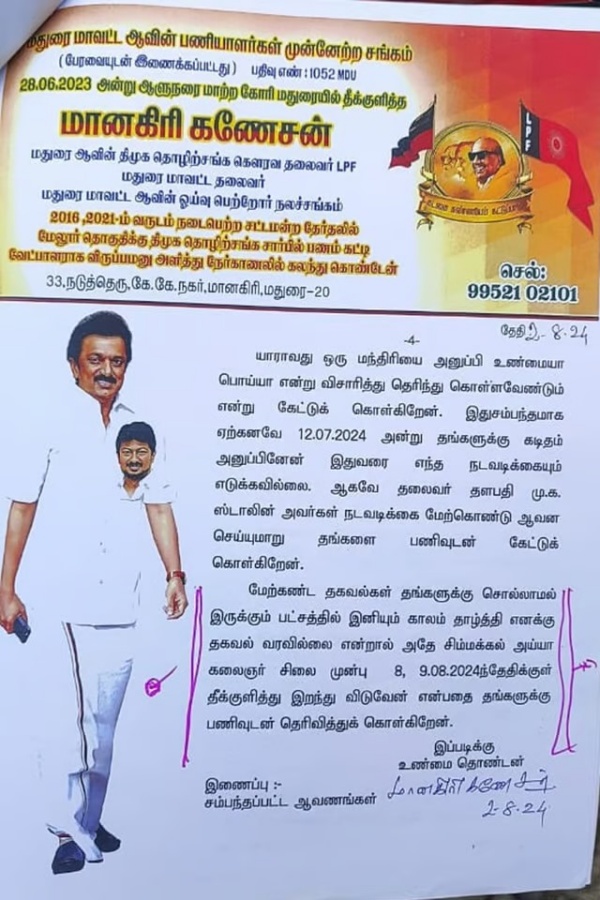 மதுரை மாவட்ட ஆவின் பணியாளர்கள் முன்னேற்ற சங்கம்
(பேரவையுடன் இணைக்கப்பட்டது) பதிவு எண் : 1052 MDU
28.06.2023 அன்று ஆளுநரை மாற்ற கோரி மதுரையில் தீக்குளித்த
மானகிரி கணேசன்
மதுரை ஆவின் திமுக தொழிற்சங்க கௌரவ தலைவர் LPF
மதுரை மாவட்ட தலைவர்
மதுரை மாவட்ட ஆவின் ஓய்வு பெற்றோர் நலச்சங்கம்
2016 ,2021-ம் வருடம் நடைபெற்ற சட்டமன்ற தேர்தலில்
மேலூர் தொகுதிக்கு திமுக தொழிற்சங்க சார்பில் பணம் கட்டி
வேட்பாளராக விருப்பமனு அளித்து நேர்காணலில் கலந்து கொண்டேன்
33,நடுத்தெரு,கே.கே.நகர்,மானகிரி,மதுரை-20
LPF
செல்:
99521 02101
தேதி 2-8-24
-4-
யாராவது ஒரு மந்திரியை அனுப்பி உண்மையா
பொய்யா என்று விசாரித்து தெரிந்து கொள்ளவேண்டும்
என்று கேட்டுக் கொள்கிறேன். இதுசம்பந்தமாக
ஏற்கனவே 12.07.2024 அன்று தங்களுக்கு கடிதம்
அனுப்பினேன் இதுவரை எந்த நடவடிக்கையும்
எடுக்கவில்லை. ஆகவே தலைவர் தளபதி மு.க.
ஸ்டாலின் அவர்கள் நடவடிக்கை மேற்கொண்டு ஆவன
செய்யுமாறு தங்களை பணிவுடன் கேட்டுக்
கொள்கிறேன்.
மேற்கண்ட தகவல்கள் தங்களுக்கு சொல்லாமல்
இருக்கும் பட்சத்தில் இனியும் காலம் தாழ்த்தி எனக்கு
தகவல் வரவில்லை என்றால் அதே சிம்மக்கல் அய்யா
கலைஞர் சிலை முன்பு 8, 9.08.2024ந்தேதிக்குள்
தீக்குளித்து இறந்து விடுவேன் என்பதை தங்களுக்கு
பணிவுடன் தெரிவித்துக் கொள்கிறேன்.
இப்படிக்கு
உண்மை தொண்டன்
இணைப்பு :-
சம்பந்தப்பட்ட ஆவணங்கள்
மானகிரி கணேசன்
2-8-24